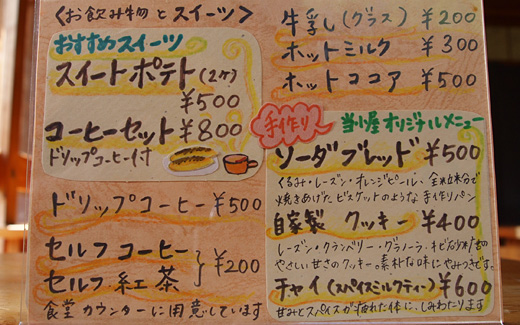 〈お飲み物とスイーツ〉
おすすめスイーツ
スイートポテト(2ケ)
¥500
コーヒーセット ¥800
ドリップコーヒー付
ドリップコーヒー ¥500
セルフコーヒー
セルフ紅茶
¥200
食堂カウンターに用意しています
牛乳(グラス) ¥200
ホットミルク ¥300
ホットココア ¥500
手作り 当小屋オリジナルメニュー
ソーダブレッド ¥500
くるみ・レーズン・オレンジピール、全粒粉で
焼きあげた、ビスケットのような手作りパン
自家製 クッキー ¥400
レーズン・クランベリー・グラノーラ・キビ砂糖の
やさしい甘さのクッキー。素朴な味にやみつきです。
チャイ(スパイスミルクティー) ¥600
甘みとスパイスが疲れた体に、しみわたります